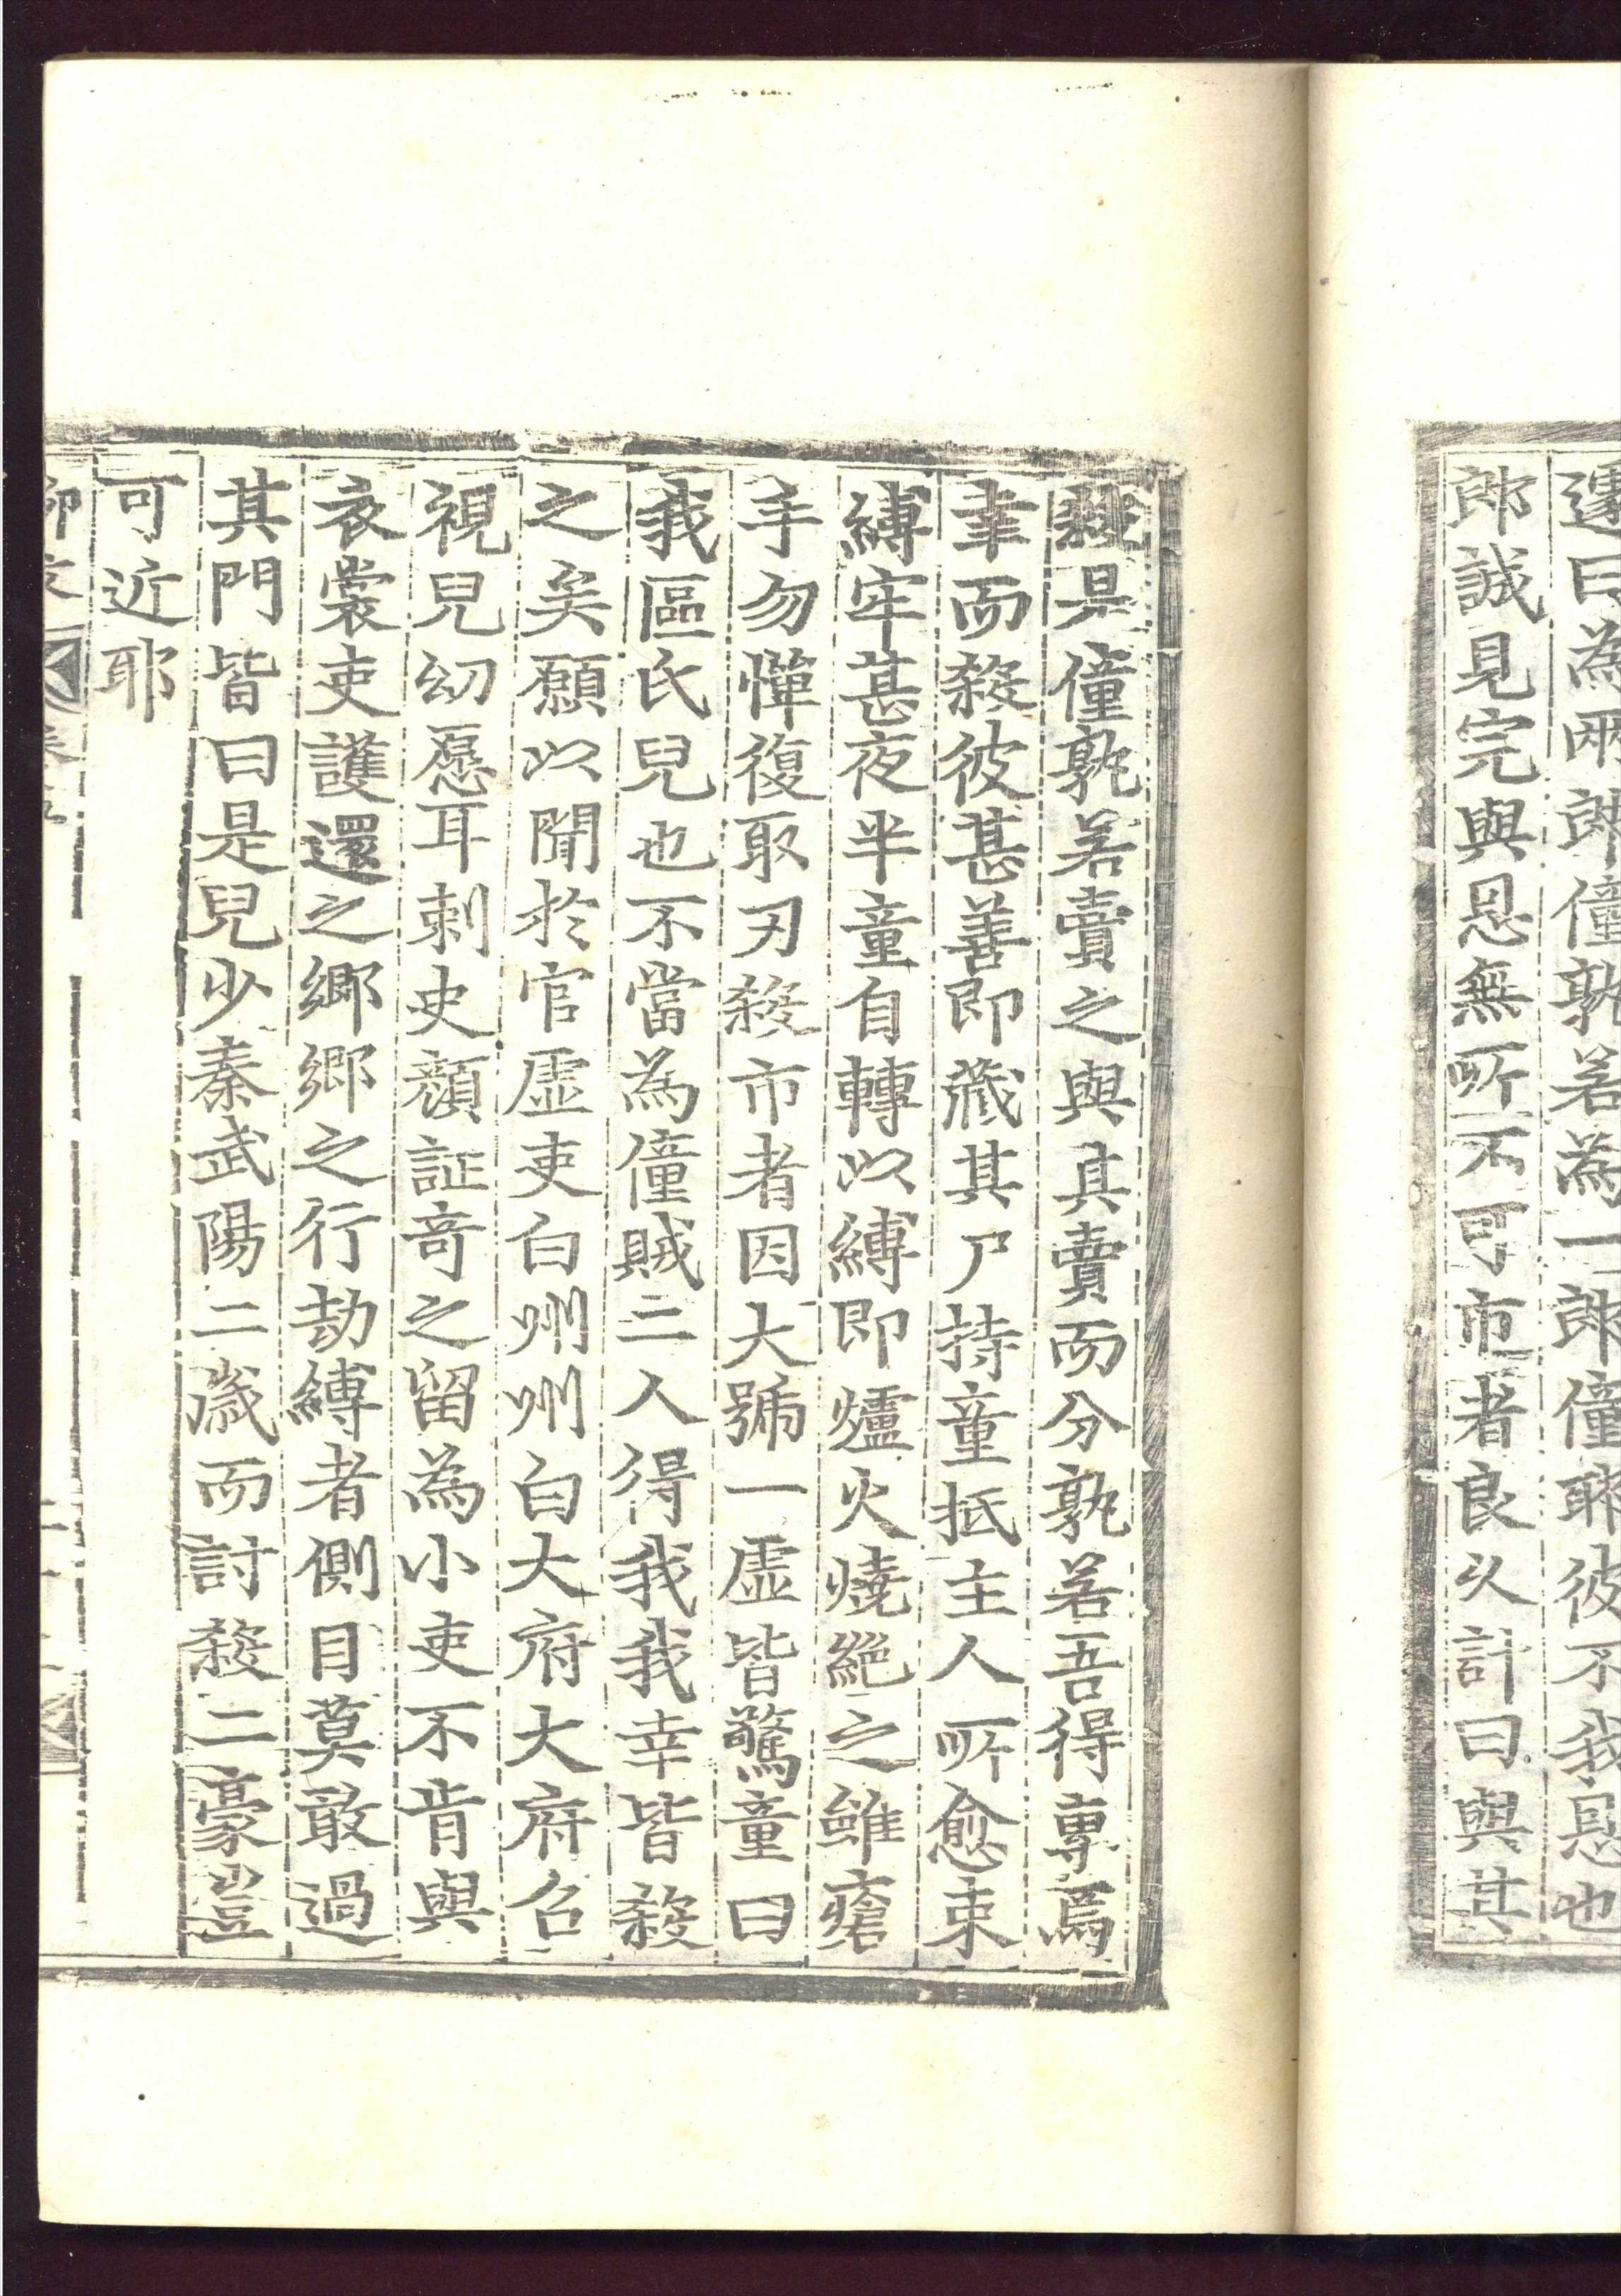 遽曰為兩郎僮孰若為一郎僮耶彼不我恩也
郎誠見完與恩無所不可市者良久計曰與其
殺是僮孰若賣之與其賣而分孰若吾得專焉
幸而殺彼甚善即藏其尸持童抵主人所愈束
縛牢甚夜半童自轉以縛即爐火燒絕之雖瘡
手勿憚復取刃殺市者因大號一虛皆驚童曰
我區氏兒也不當為僮賊二人得我我幸皆殺
之矣願以聞於官虛吏白州州白大府大府召
視兒幼愿耳刺史顏証奇之留為小吏不肯與
衣裳吏護還之鄉鄉之行劫縛者側目莫敢過
其門皆曰是兒少秦武陽二歲而討殺二豪豈
可近耶